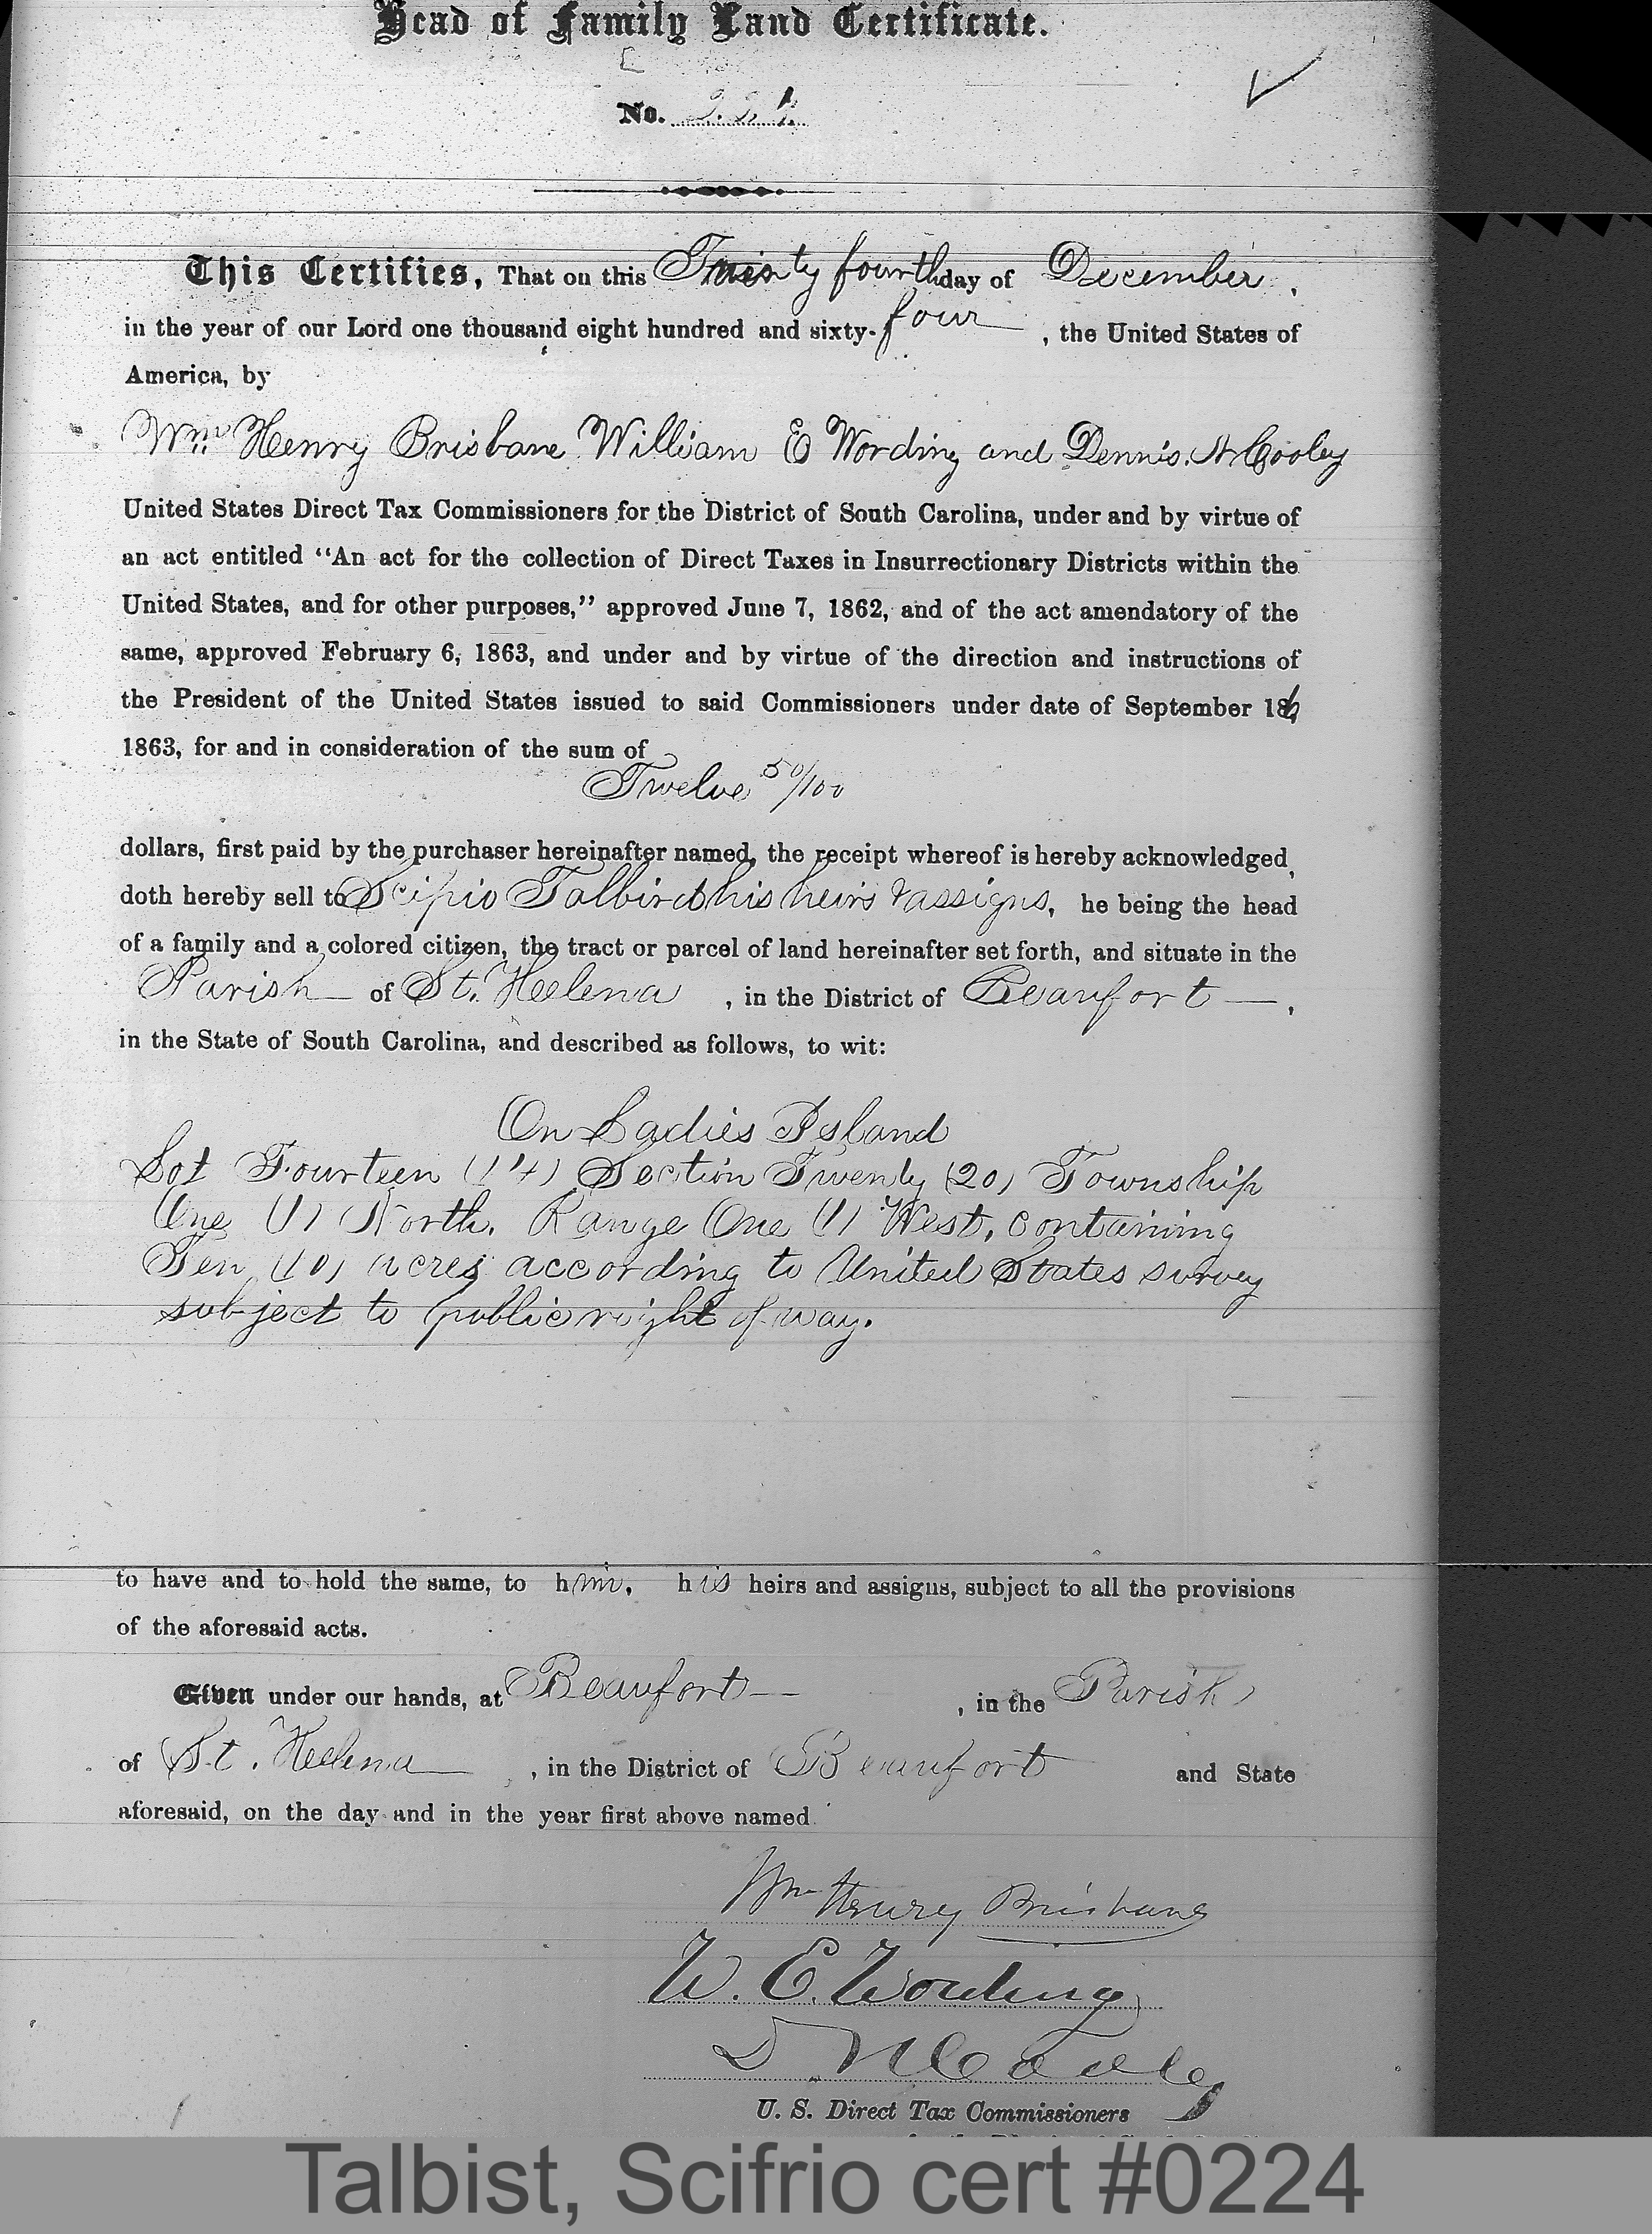 Head of Family Land Certificate.
No. 224
This Certifies, That on this Twenty fourth day of December,
in the year of our Lord one thousand eight hundred and sixty-four, the United States of
America, by
Wm. Henry Brisbane William E Wording and Dennis. N Cooley
United States Direct Tax Commissioners for the District of South Carolina, under and by virtue of
an act entitled “An act for the collection of Direct Taxes in Insurrectionary Districts within the
United States, and for other purposes,” approved June 7, 1862, and of the act amendatory of the
same, approved February 6, 1863, and under and by virtue of the direction and instructions of
the President of the United States issued to said Commissioners under date of September 16
1863, for and in consideration of the sum of
Twelve 50/100
dollars, first paid by the purchaser hereinafter named, the receipt whereof is hereby acknowledged,
doth hereby sell to Scipio Talbird his heirs & assigns, he being the head
of a family and a colored citizen, the tract or parcel of land hereinafter set forth, and situate in the
Parish of St. Helena, in the District of Beaufort,
in the State of South Carolina, and described as follows, to wit:
On Ladies Island
Lot Fourteen (14) Section Twenty (20) Township
One (1) North. Range One (1) West, containing
Ten (10) acres according to United States survey
subject to public right of way.
to have and to hold the same, to him, his heirs and assigns, subject to all the provisions
of the aforesaid acts.
Given under our hands, at Beaufort, in the Parish
of St. Helena, in the District of Beaufort and State
aforesaid, on the day and in the year first above named.
Wm Henry Brisbane
W. E. Wording
D. N Cooley
U. S. Direct Tax Commissioners
Talbist, Scifrio cert #0224